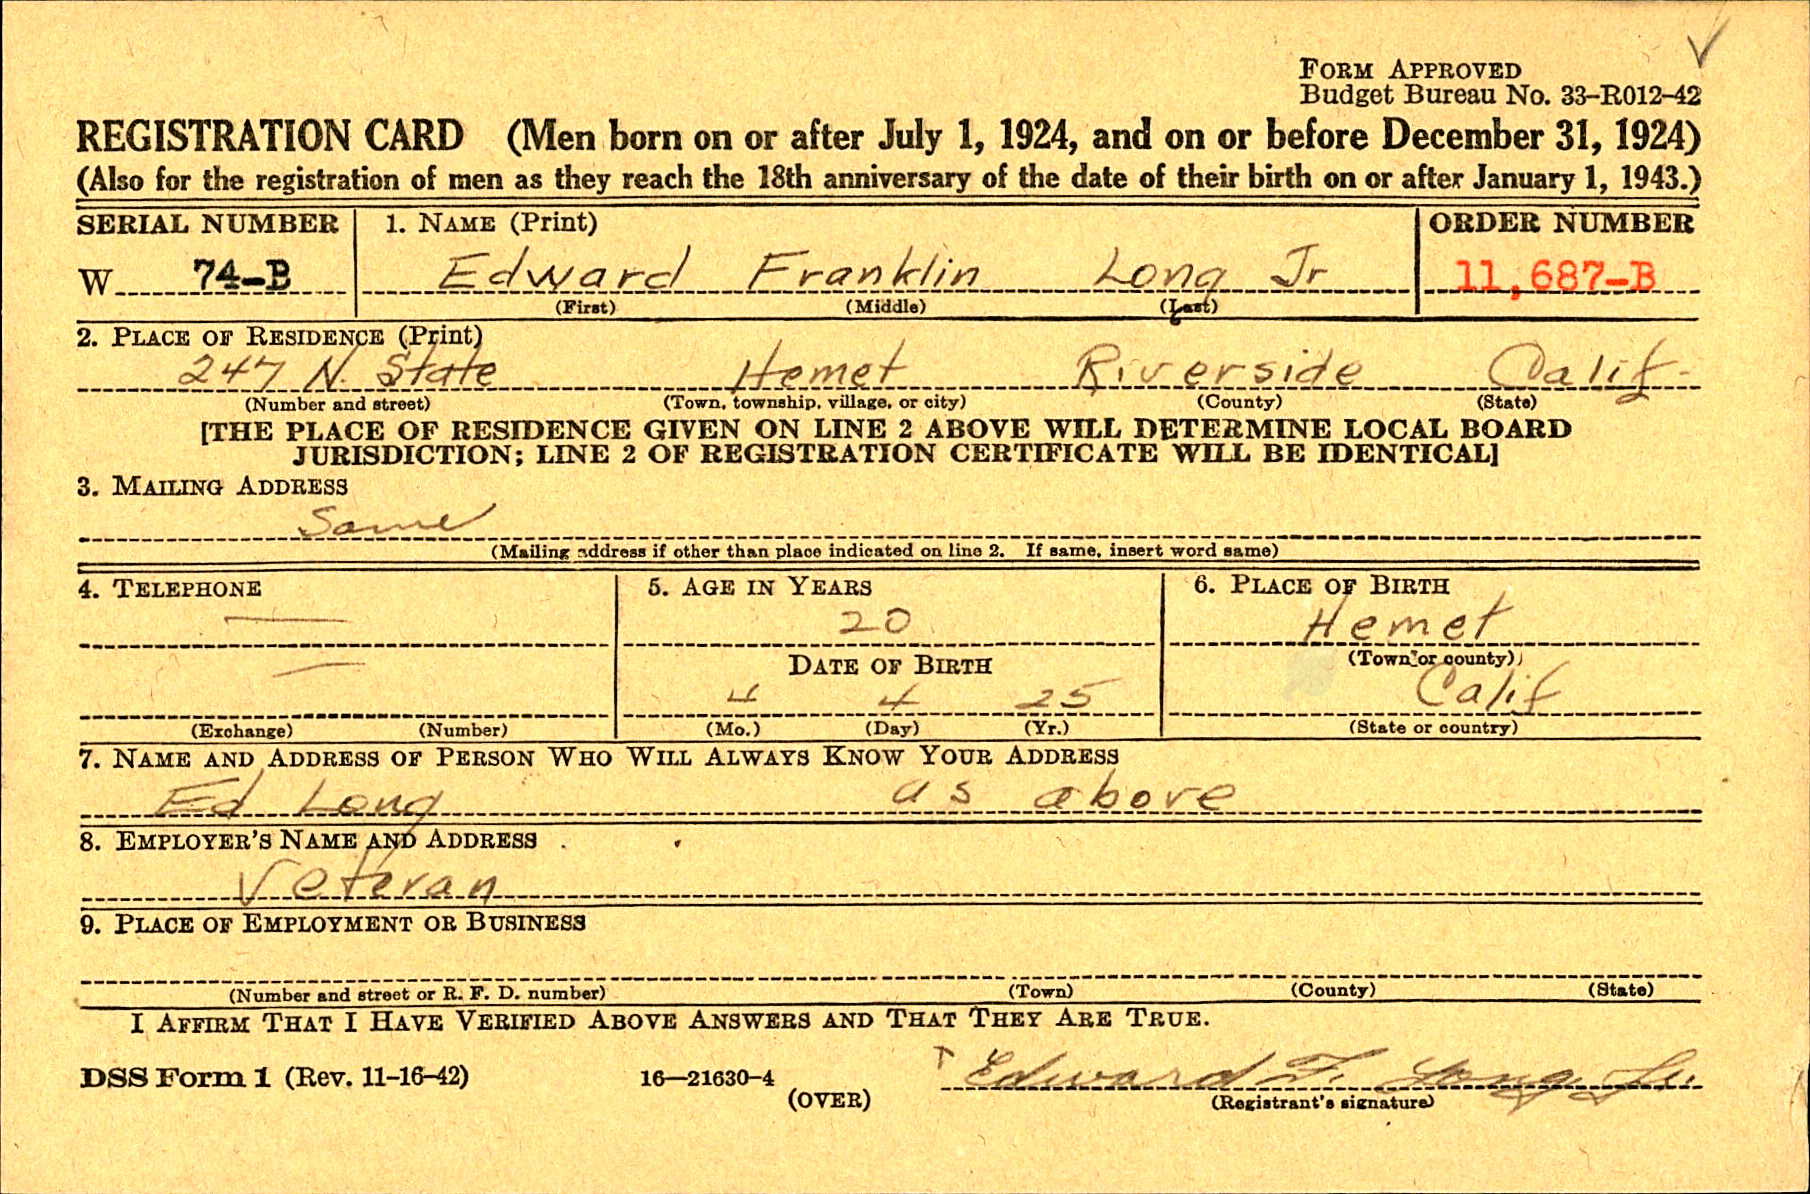 FORM APPROVED
Budget Bureau No. 33–R012–42
REGISTRATION CARD (Men born on or after July 1, 1924, and on or before December 31, 1924)
(Also for the registration of men as they reach the 18th anniversary of the date of their birth on or after January 1, 1943.)
SERIAL NUMBER 1. NAME (Print) ORDER NUMBER
W 74-B Edward Franklin Long Jr 11,687-B
(First) (Middle) (Last)
2. PLACE OF RESIDENCE (Print)
247 N. State Hemet Riverside Calif-
(Number and street) (Town, township, village, or city) (County) (State)
[THE PLACE OF RESIDENCE GIVEN ON LINE 2 ABOVE WILL DETERMINE LOCAL BOARD
JURISDICTION; LINE 2 OF REGISTRATION CERTIFICATE WILL BE IDENTICAL]
3. MAILING ADDRESS
Same
(Mailing address if other than place indicated on line 2. If same, insert word same)
4. TELEPHONE 5. AGE IN YEARS 6. PLACE OF BIRTH
— 20 Hemet
DATE OF BIRTH (Town or county)
— 4 4 25 Calif
(Exchange) (Number) (Mo.) (Day) (Yr.) (State or country)
7. NAME AND ADDRESS OF PERSON WHO WILL ALWAYS KNOW YOUR ADDRESS
Ed Long as above
8. EMPLOYER'S NAME AND ADDRESS
Veteran
9. PLACE OF EMPLOYMENT OR BUSINESS
(Number and street or R. F. D. number) (Town) (County) (State)
I AFFIRM THAT I HAVE VERIFIED ABOVE ANSWERS AND THAT THEY ARE TRUE.
DSS Form 1 (Rev. 11–16–42) 16—21630-4 Edward F. Long Jr.
(OVER) (Registrant's signature)